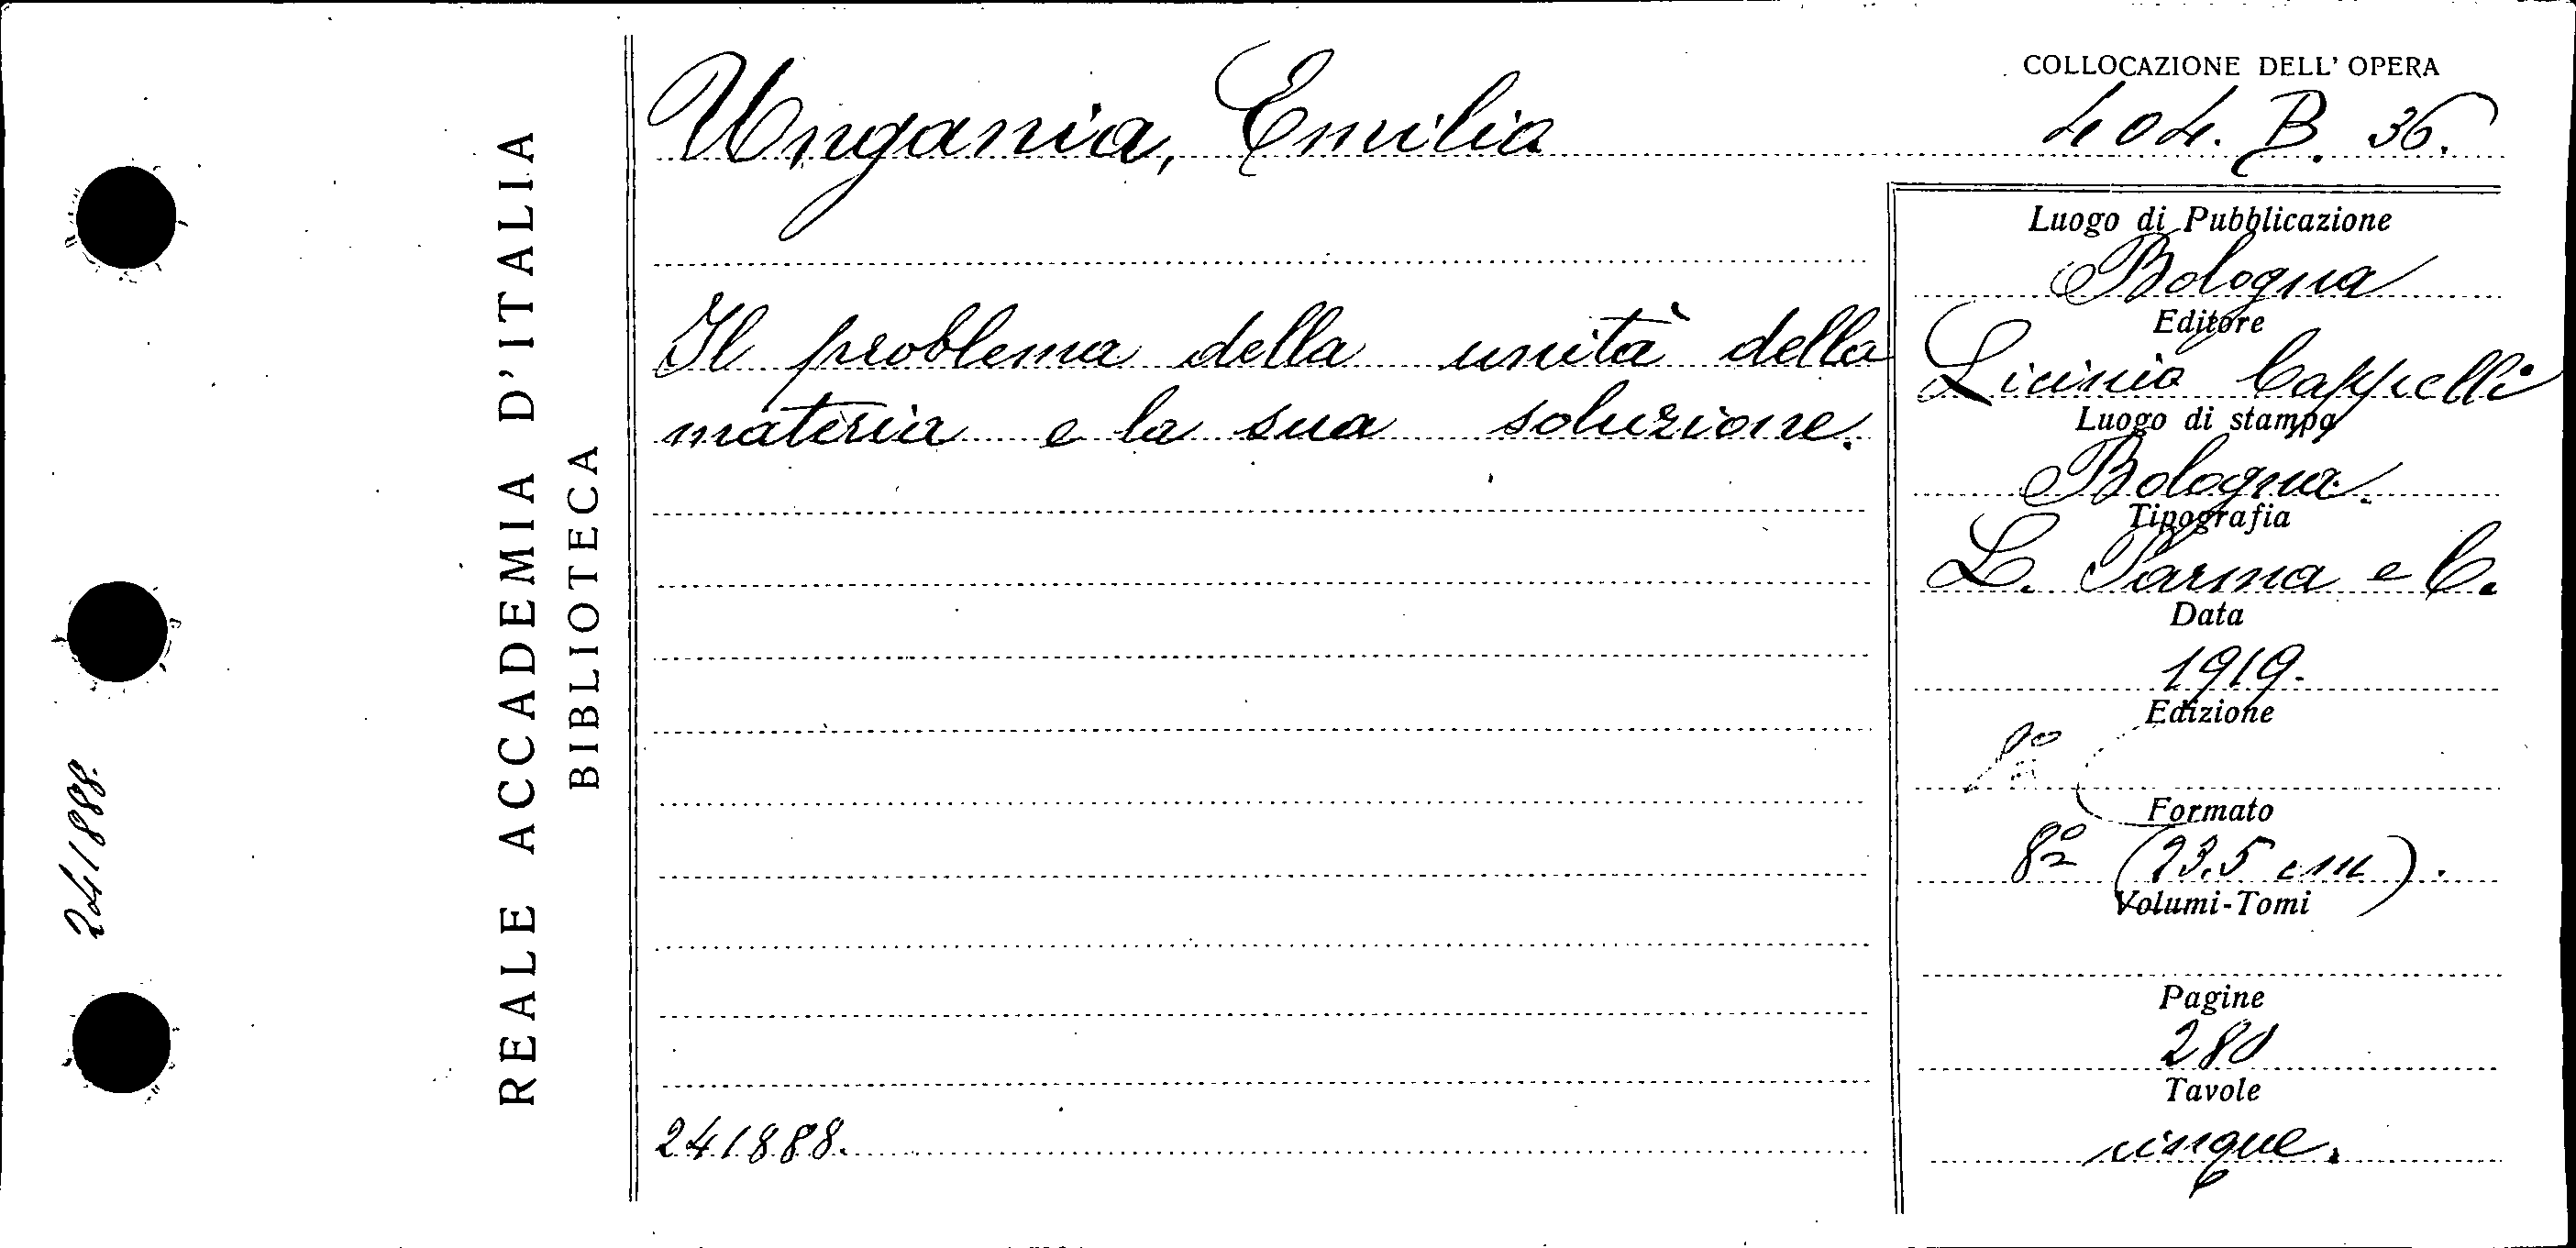 241888.
REALE ACCADEMIA D'ITALIA
BIBLIOTECA
Ungania, Emilia
Il problema della unità della
materia e la sua soluzione.
241888.
COLLOCAZIONE DELL' OPERA
404. B. 36.
Luogo di Pubblicazione
Bologna
Editore
Licinio Cappelli
Luogo di stampa
Bologna.
Tipografia
L. Parma e C.
Data
1919.
Edizione
Formato
8º (23.5 cm).
Volumi-Tomi
Pagine
280
Tavole
cinque.